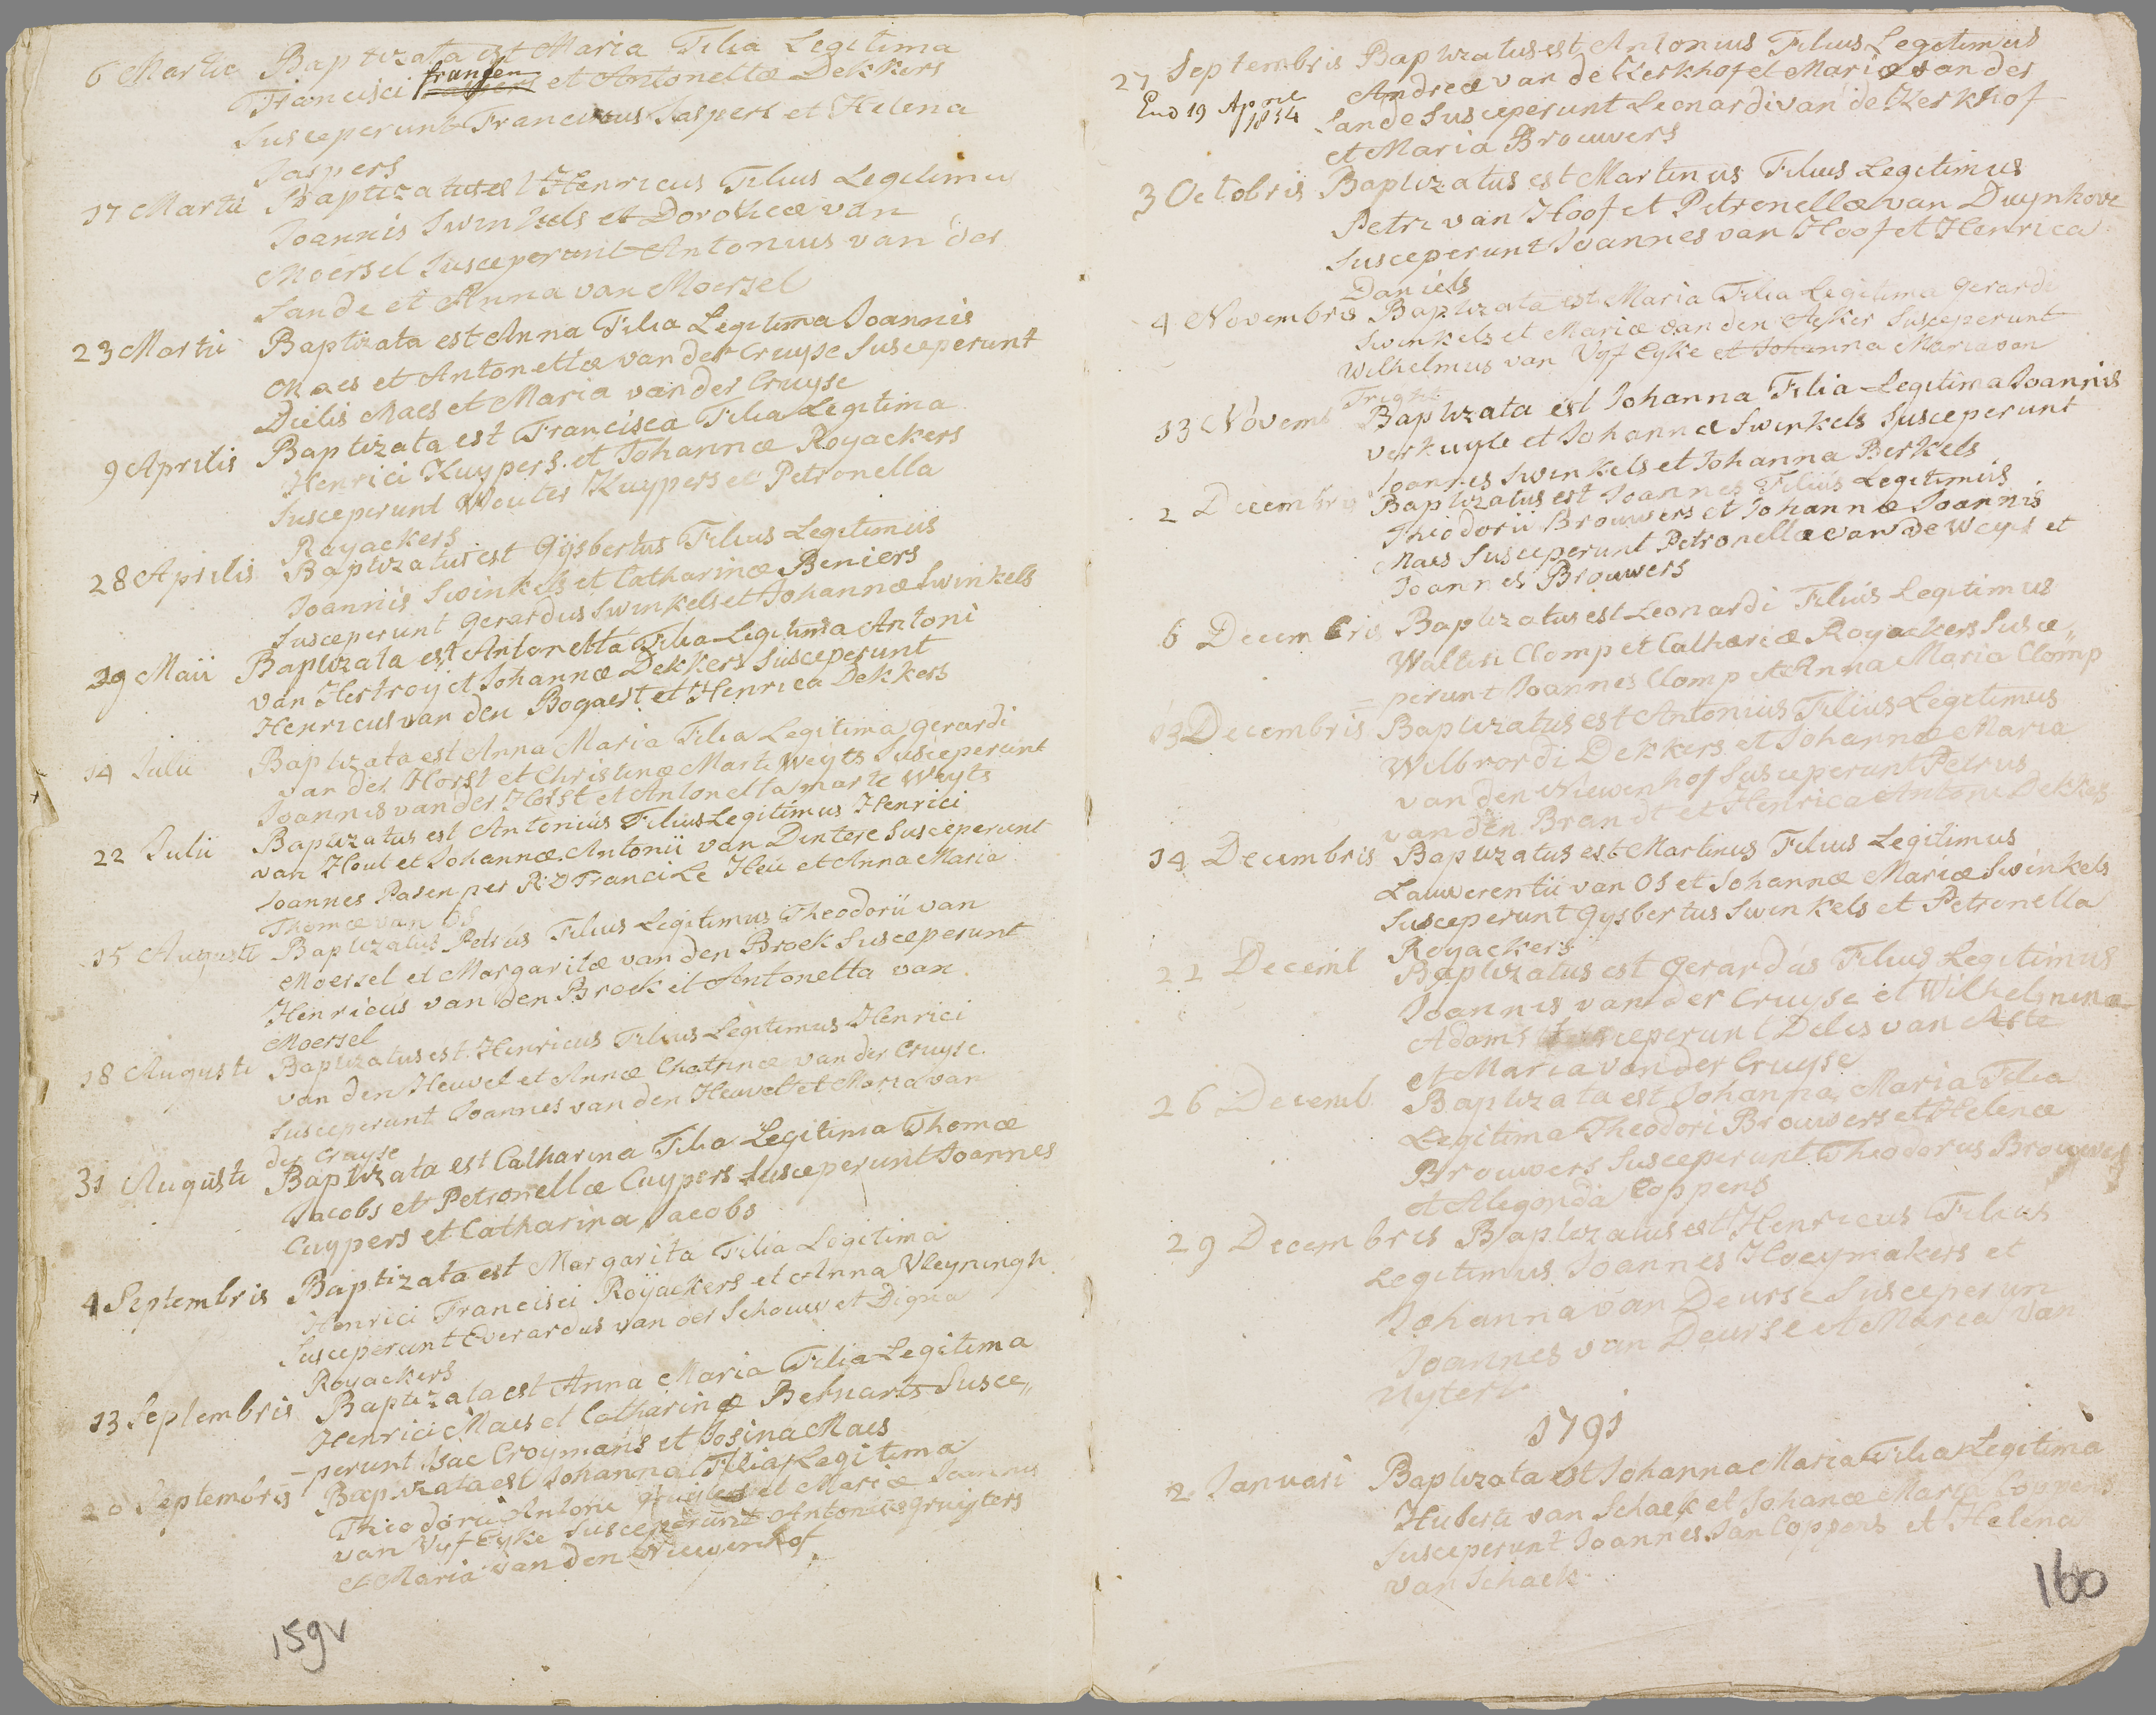 6 Martii Baptizata est Maria Filia Legitima
Francisci fransen et Antonettæ Dekkers
Susceperunt Franciscus Jaspers et Helena
Jaspers
17 Martii Baptizatus est Henricus Filius Legitimus
Joannis Swinkels et Dorotheæ van
Moersel Susceperunt Antonius van der
Sande et Anna van Moersel
23 Martii Baptizata est Anna Filia Legitima Joannis
Maes et Antonettæ van der Cruyse Susceperunt
Dielis Maes et Maria van der Cruyse
9 Aprilis Baptizata est Francisca Filia Legitima
Henrici Kuypers et Johannæ Royackers
Susceperunt Wouter Kuypers et Petronella
Royackers
28 Aprilis Baptizatus est Gijsbertus Filius Legitimus
Joannis Swinkels et Catharinæ Beniers
Susceperunt Gerardus Swinkels et Johannæ Swinkels
29 Maii Baptizata est Antonetta Filia Legitima Antoni
van Hertroij et Johannæ Dekkers Susceperunt
Henricus van den Bogaert et Henrica Dekkers
14 Julii Baptizata est Anna Maria Filia Legitima Gerardi
van der Horst et Christinæ Marti Weyts Susceperunt
Joannis van der Horst et Antonetta marte Weyts
22 Julii Baptizatus est Antonius Filius Legitimus Henrici
van Hout et Johannæ Antonii van Dintere Susceperunt
Joannes Pasen per R:D Franci Le Heu et Anna Maria
Thomæ van Os
15 Augusti Baptizatus Petrus Filius Legitimus Theodorii van
Moersel et Margaritæ van den Broek Susceperunt
Henricus van den Broek et Antonetta van
Moersel
18 Augusti Baptizatus est Henricus Filius Legitimus Henrici
van den Heuvel et Annæ Chatrinæ van der Cruyse
Susceperunt Joannes van den Heuvel et Maria van
der Cruyse
31 Augusti Baptizata est Catharina Filia Legitima Thomæ
Jacobs et Petronellæ Cuypers Susceperunt Joannes
Cuypers et Catharina Jacobs
4 Septembris Baptizata est Margarita Filia Legitima
Henrici Francisci Royackers et Anna Vleyningh
Susceperunt Everardus van der Schouw et Digna
Royackers
13 Septembris Baptizata est Anna Maria Filia Legitima
Henrici Maes et Catharinæ Bernarts Susce„
– perunt Isac Croymans et Josina Maes
20 Septembris Baptizata est Johanna Filia Legitima
Theodorii Antoni gruyters et Mariæ Joannis
van Vyf Eyke Susceperunt Antonius gruijters
et Maria van den Niewenhof
159v
27 Septembris Baptizatus est Antonius Filius Legitimus
Andreæ van de Kerkhof et Mariæ van der
End 19 April 1834
Sande Susceperunt Leonardi van de Kerkhof
et Maria Brouwers
3 Octobris Baptizatus est Martinus Filius Legitimus
Petri van Hoof et Petronellæ van Duynhove
Susceperunt Joannes van Hoof et Henrica
Daniels
4 Novembris Baptizata est Maria Filia Legitima Gerardi
Swinkels et Mariæ van den Acker Susceperunt
Wilhelmus van Vyf Eyke et Johanna Maria van
Tright
13 Novemb Baptizata est Johanna Filia Legitima Joannis
verkuyle et Johannæ Swinkels Susceperunt
Joannes Swinkels et Johanna Berkels
2 Decembris Baptizatus est Joannes Filius Legitimus
Theodorii Brouwers et Johannæ Joannis
Maes Susceperunt Petronellæ van de Weyt et
Joannes Brouwers
6 Decembris Baptizatus est Leonardi Filius Legitimus
Walteri Clomp et Catharinæ Royackers Susce„
= perunt Joannes Clomp et Anna Maria Clomp
13 Decembris Baptizatus est Antonius Filius Legitimus
Wilbrordi Dekkers et Johannæ Maria
van den Niewenhof Susceperunt Petrus
van den Brandt et Henrica Antoni Dekkers
14 Decembris Baptizatus est Martinus Filius Legitimus
Lauwerentii van Os et Johannæ Mariæ Swinkels
Susceperunt Gijsbertus Swinkels et Petronella
Royackers
22 Decemb Baptizatus est Gerardus Filius Legitimus
Joannis van der Cruyse et Wilhelmina
Adams Susceperunt Delis van Aste
et Maria van der Cruyse
26 Decemb Baptizata est Johanna Maria Filia
Legitima Theodori Brouwers et Helenæ
Brouwers Susceperunt Theodorus Brouwers
et Alegonda Coppens
29 Decembris Baptizatus est Henricus Filius
Legitimus Joannes Hoeymakers et
Johanna van Deurse Susceperun
Joannes van Deurse et Maria van
Uytert
1791
2 Januari Baptizata est Johanna Maria Filia Legitima
Huberti van Schaek et Johanæ Maria Coppens
Susceperunt Joannes Jan Coppens et Helena
van Schaek
160